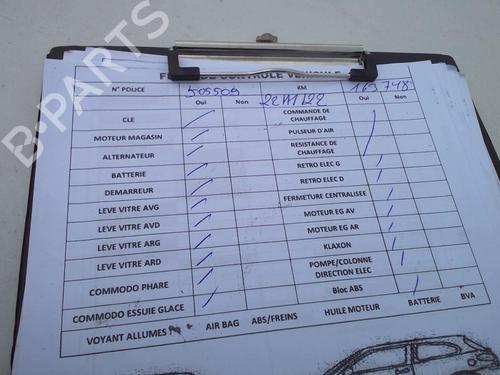 B-PARTS
FICHE DE CONTROLE VEHICULE
N° POLICE 505509 KM 163748
Oui Non 22/11/22 Oui Non
CLE COMMANDE DE CHAUFFAGE
MOTEUR MAGASIN PULSEUR D'AIR
ALTERNATEUR RESISTANCE DE CHAUFFAGE
BATTERIE RETRO ELEC G
DEMARREUR RETRO ELEC D
LEVE VITRE AVG FERMETURE CENTRALISEE
LEVE VITRE AVD MOTEUR EG AV
LEVE VITRE ARG MOTEUR EG AR
LEVE VITRE ARD KLAXON
COMMODO PHARE POMPE/COLONNE DIRECTION ELEC
COMMODO ESSUIE GLACE Bloc ABS
VOYANT ALLUMES AIR BAG ABS/FREINS HUILE MOTEUR BATTERIE BVA